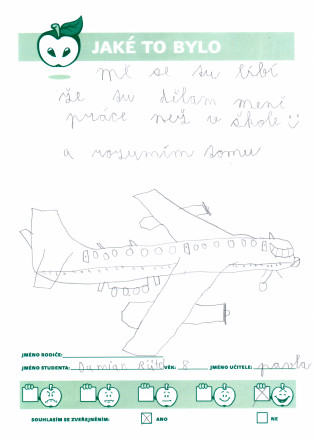 JAKÉ TO BYLO
mě se tu líbí
že tu dělam mení
práce než v škole
a rozumím tomu
JMÉNO RODIČE:
JMÉNO STUDENTA: Damian VĚK: 8 JMÉNO UČITELE: pavla
SOUHLASÍM SE ZVEŘEJNĚNÍM: ANO NE